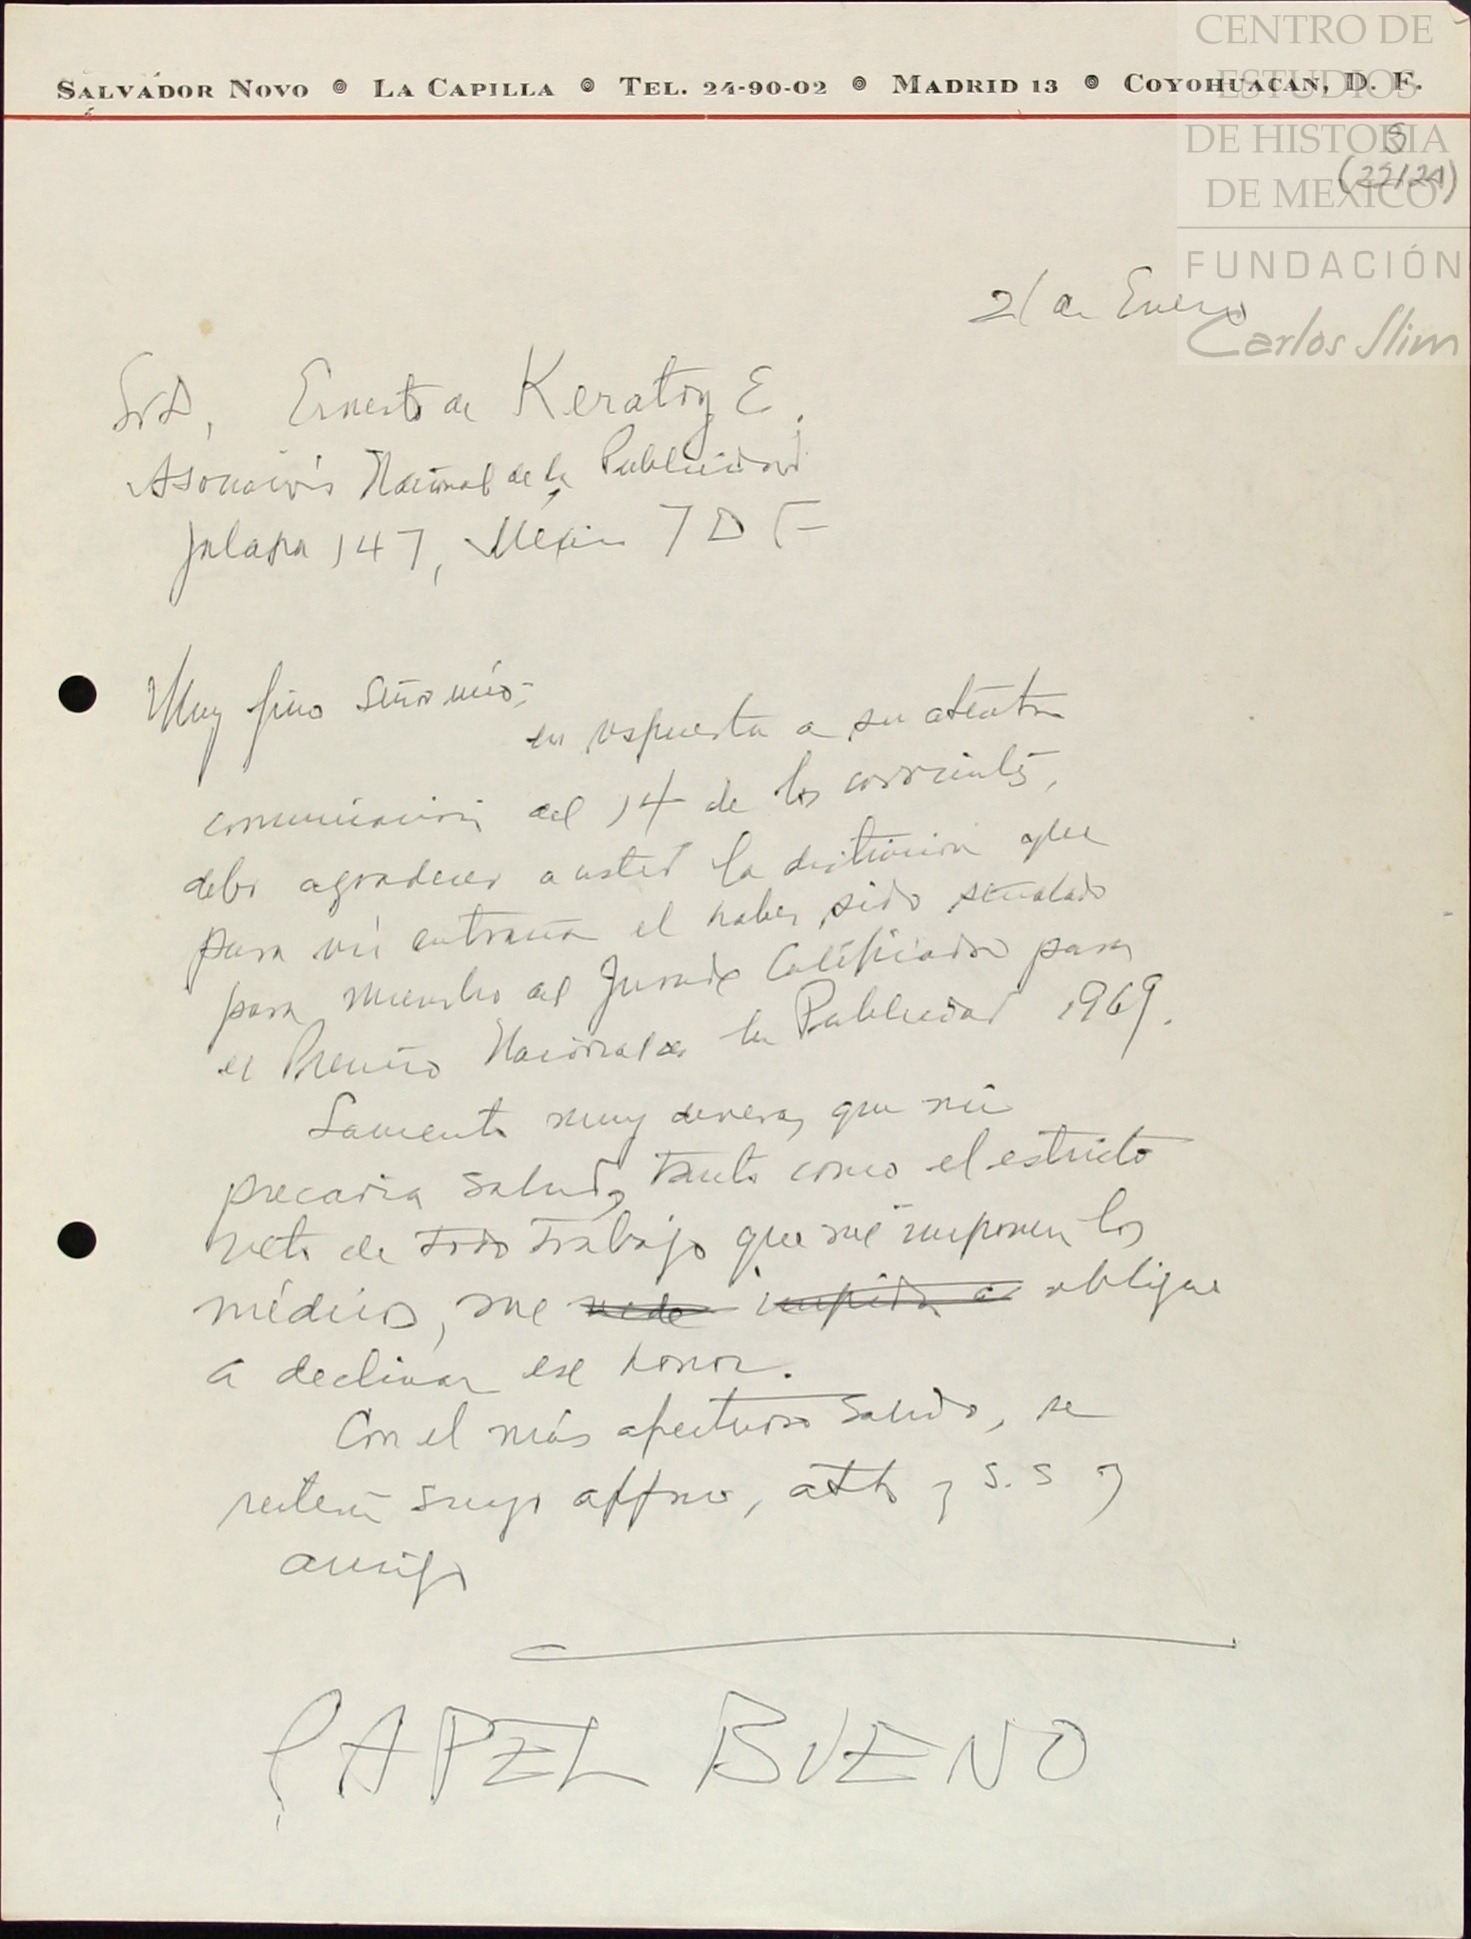 SALVADOR NOVO ⦿ LA CAPILLA ⦿ TEL. 24-90-02 ⦿ MADRID 13 ⦿ COYOHUACAN, D. F.
CENTRO DE
ESTUDIOS
DE HISTORIA
DE MEXICO
FUNDACIÓN
Carlos Slim
S
(22/24)
21 de Enero
Ernesto de Keratry E.
Asociación Nacional de la Publicidad
Jalapa 147, México 7 D F
Muy fino Señor mío:
en respuesta a su atenta
comunicación del 14 de los corrientes,
debo agradecer a usted la distinción que
para mí entraña el haber sido señalado
para miembro del Jurado Calificador para
el Premio Nacional de la Publicidad 1969.
Lamento muy deveras que mi
precaria salud, tanto como el estricto
veto de todo trabajo que me imponen los
médicos, me impida a obligue
a declinar ese honor.
Con el más afectuoso saludo, se
reitera suyo affmo, atto y S.S y
amigo
PAPEL BUENO